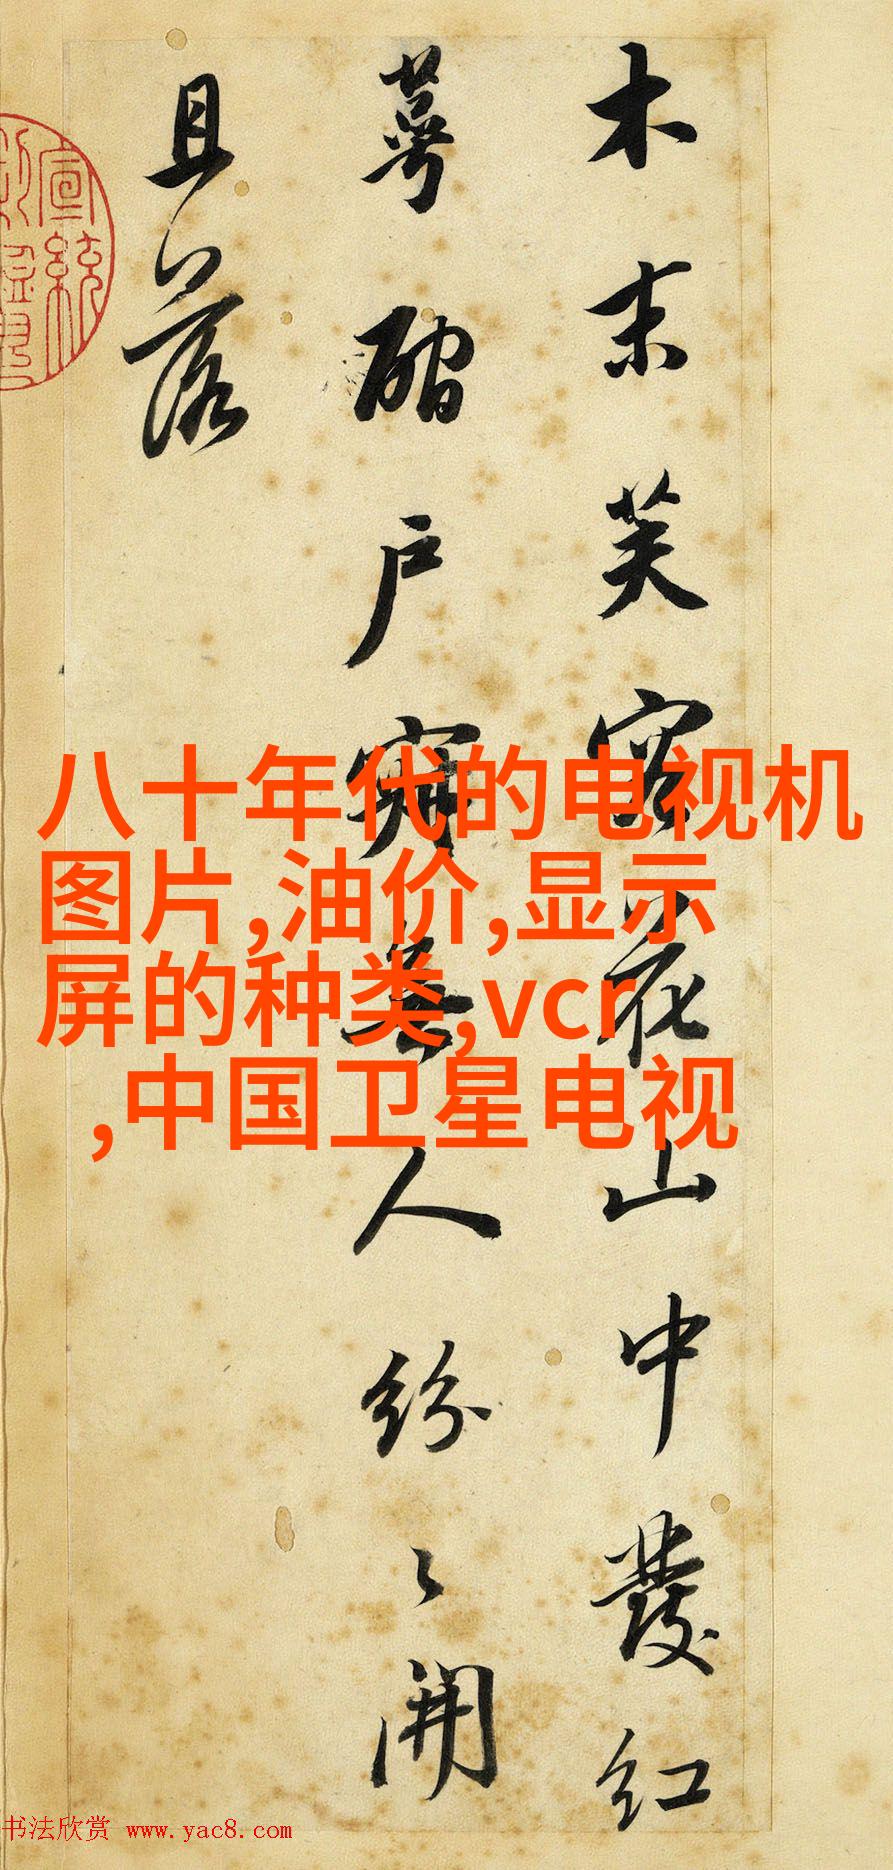 木末芙蓉花山中發紅
蕚戶寂無人紛〻開
且落
宣統
八十年代的电视机
图片,油价,显示
屏的种类,vcr
,中国卫星电视
书法欣赏 www.yac8.com